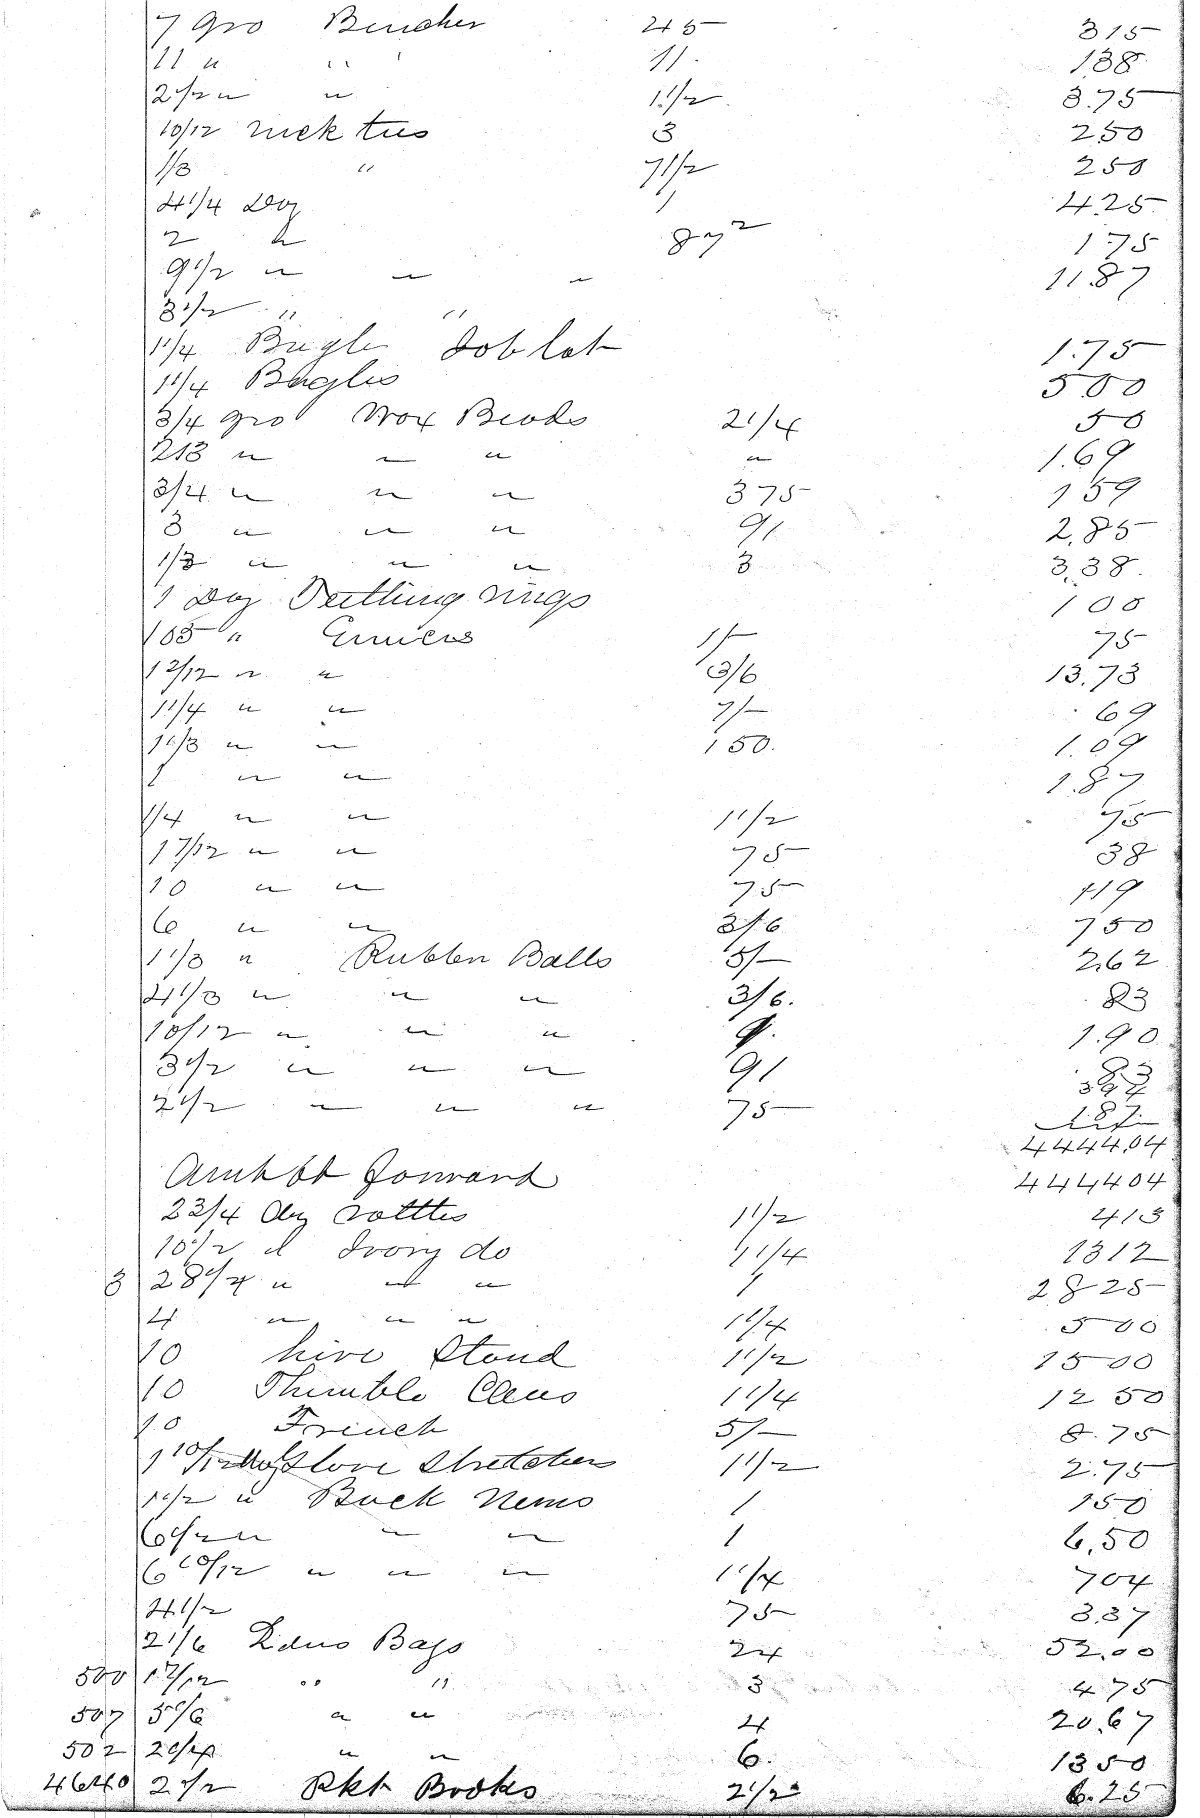 7 gro Binches 45 315
11 " " 11. 138
2 1/2 " " 1 1/2 3.75
10/12 neck ties 3 250
1/3 " 7 1/2 250
4 1/4 Doz 1 4.25
2 " 87 2 175
9 1/2 " " " 11.87
3 1/2 " "
1 1/4 Bugle Job lot 1.75
1 1/4 Bugles 500
3/4 gro Wax Beads 2 1/4 50
213 " " " " 1.69
3/4 " " " 375 159
3 " " " 91 2.85
1/3 " " " 3 3.38
1 Doz Teething rings 100
105 " 1/- 75
1 2/12 " " 3/6 13.73
1 1/4 " " 7/- 69
1 1/3 " " 150. 1.09
1 " " 1.87
1/4 " " 1 1/2 75
1 7/12 " " 75 38
10 " " 75 119
6 " " 3/6 750
1 1/3 " Rubber Balls 5/- 2.62
4 1/3 " " " 3/6. 83
10/12 " " " 9. 1.90
3 1/2 " " " 91 83
394
2 1/2 " " " 75 187
4444.04
Amt bt forward 444404
2 3/4 doz rattles 1 1/2 413
10 1/2 d Ivory do 1 1/4 1312
3 28 1/4 " " " 1 2825
4 " " " 1 1/4 500
10 Stand 1 1/2 1500
10 Thimble Cases 1 1/4 1250
10 French 5/- 8.75
1 10/12 doz Glove Stretchers 1 1/2 2.75
1 1/2 " Buck 1 150
6 1/2 " " " 1 6.50
6 10/12 " " " 1 1/4 704
4 1/2 75 3.37
2 1/6 Bags 24 52.00
500 1 7/12 " " 3 475
507 5 1/6 " " 4 20.67
502 2 1/4 " " 6. 1350
4640 2 1/2 Pkt Books 2 1/2 6.25